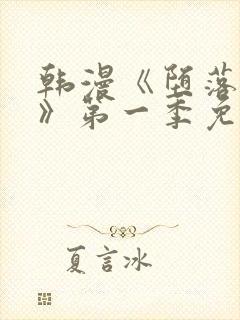 韩漫《堕落
》第一季免
夏言冰